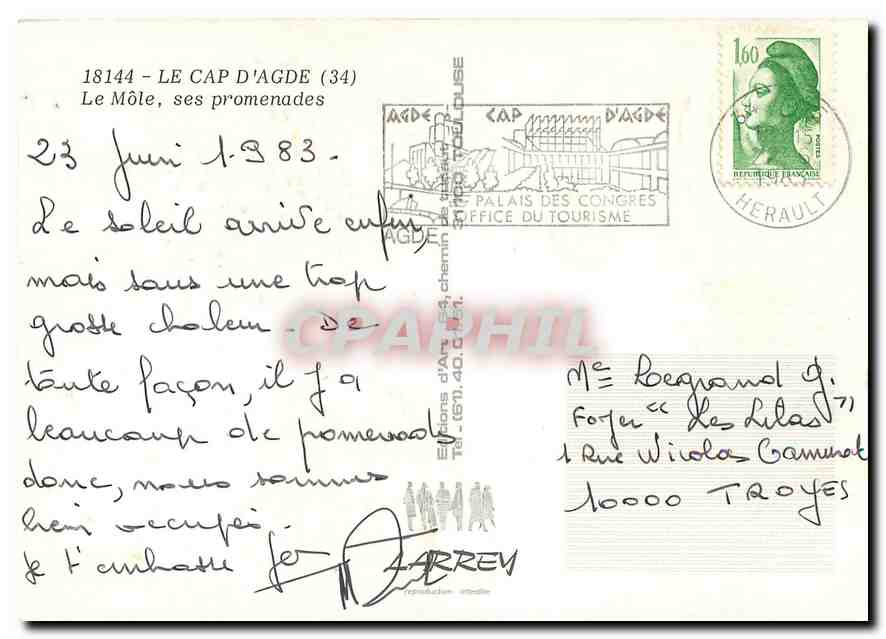 18144 - LE CAP D'AGDE (34)
Le Môle, ses promenades
23 Juin 1983.
Le soleil arrive enfin,
mais sans une trop
grosse chaleur. De
toute façon, il y a
beaucoup de promenades
donc, nous sommes
bien occupés.
Je t'embrasse
AGDE CAP D'AGDE
PALAIS DES CONGRES
OFFICE DU TOURISME
AGDE
1,60
POSTES
REPUBLIQUE FRANÇAISE
HERAULT
Editions d'Art 64, chemin de 31100 TOULOUSE
Tél - (61). 40.
CPAPHIL
Me Legrand G.
Foyer "Les Lilas"
1 Rue Nicolas Camusat
10000 TROYES
LARREY
reproduction interdite